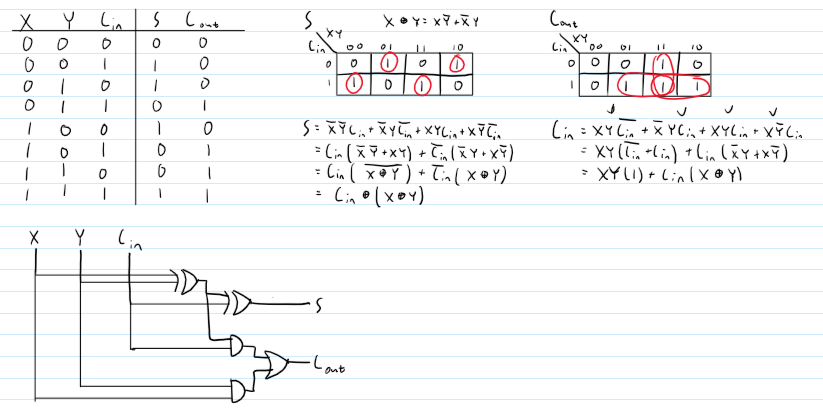 X Y Cin S Cout
0 0 0 0 0
0 0 1 1 0
0 1 0 1 0
0 1 1 0 1
1 0 0 1 0
1 0 1 0 1
1 1 0 0 1
1 1 1 1 1
S X⊕Y = XY̅+X̅Y
Cin XY 00 01 11 10
0 0 1 0 1
1 1 0 1 0
S = X̅Y̅Cin + X̅YC̅in + XYCin + XY̅C̅in
= Cin(X̅Y̅+XY) + C̅in(X̅Y+XY̅)
= Cin(X̅⊕̅Y̅) + C̅in(X⊕Y)
= Cin⊕(X⊕Y)
Cout
Cin XY 00 01 11 10
0 0 0 1 0
1 0 1 1 1
Cin = XYC̅in + X̅YCin + XYCin + XY̅Cin
= XY(C̅in+Cin) + Cin(X̅Y+XY̅)
= XY(1) + Cin(X⊕Y)
X Y Cin
S
Cout